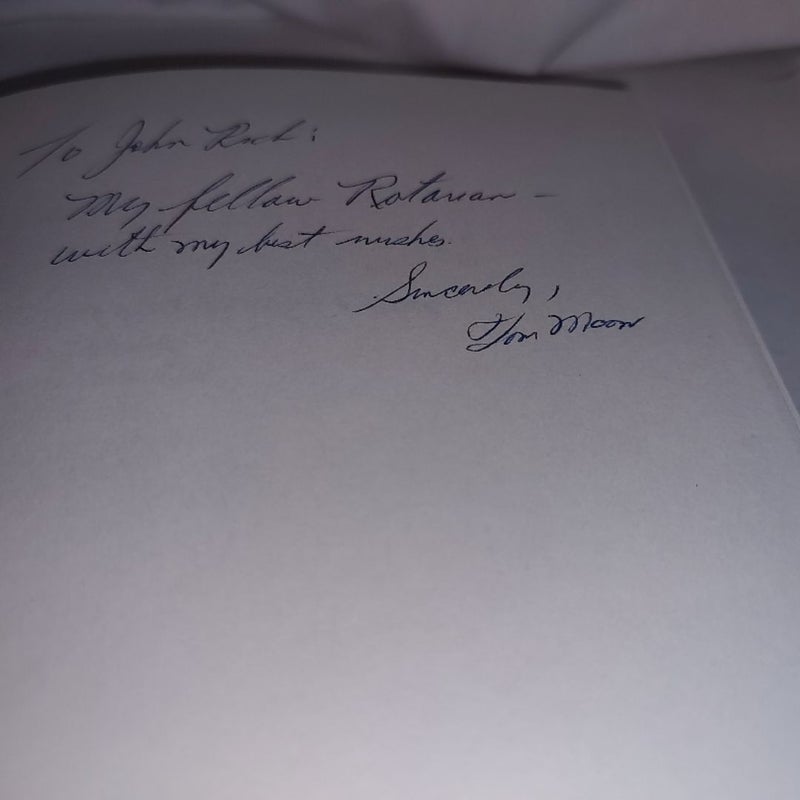 To John Rich:
My fellow Rotarian -
with my best wishes.
Sincerely,
Tom Moon